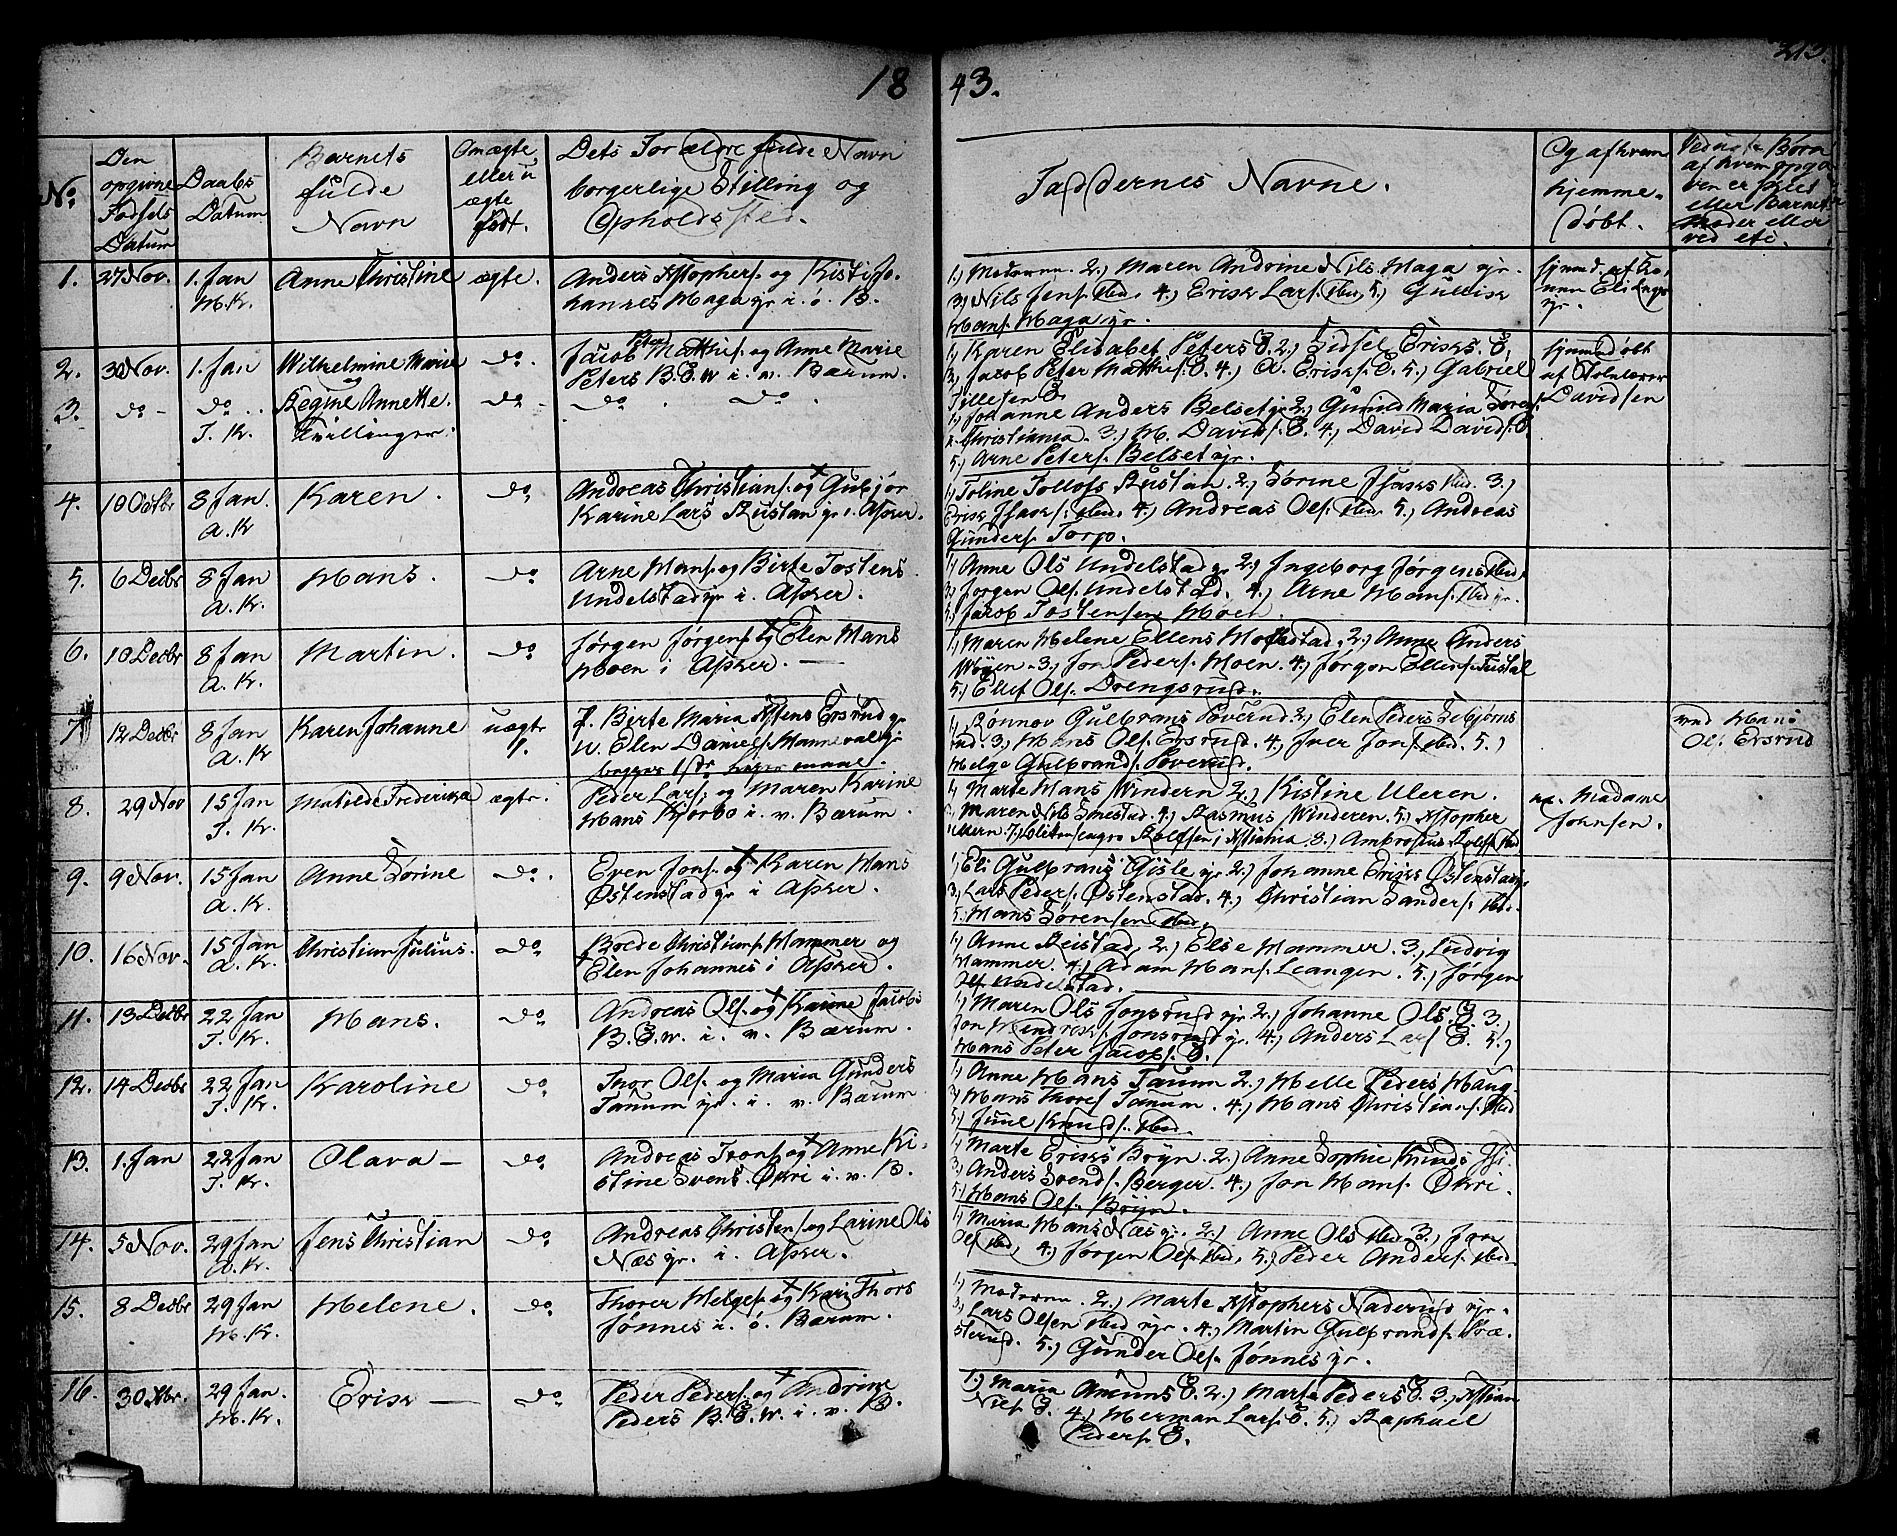 18 43.
213.
No.
Den
opgivne
Fødsels
Datum
Daabs
Datum
Barnets
fulde
Navn
Om ægte
eller u
ægte
født.
Dets Forældre fulde Navn
borgerlige Stilling og
Opholdssted.
Faddernes Navne.
Og af hvem
hjemme-
døbt.
af hvem opgi
ven er
eller Barnets
Moder eller
ved etc.
1. 27 Nov. 1. Jan Anne Christine ægte. Anders og Kisti Jo-
H. K. hannes Haga gr. i. ø. B.
1.) Moderen. 2.) Maren Andrine Nils Haga gr.
3.) Nils Jens. 4.) Erik Lars. 5.) Gullik
Hans. Haga gr.
2. 30 Nov. 1. Jan Wilhelmine Marie do. Jacob Peter Matthis. og Anne Marie
og Peters B. E. W i. v. Bærum.
1.) Karen Elisabet Peters E. 2.) Sidsel Eriks. E.
3.) Jacob Peter Matthis. E. 4.) O. Eriks. E. 5.) Gabriel
Tillesen E.
hjemmedøbt
Davidsen
3. do - do Regine Annette. do - do. do.
T. Kr. Tvillinger.
1.) Johanne Anders Belset gr. 2.) Gunild Maria Søren
Christiania. 3.) H. Davids. E. 4.) David Davids. E.
5.) Arne Peters. Belset gr.
4. 10 Octbr 8 Jan. Karen. do Andreas Christians. og Gubjør
A. K Karine Lars Rustan gr. i. Asker.
1.) Toline Tollefs Rustan. 2.) Sørine Isaks ibid. 3.)
Erik Isaks. ibid. 4.) Andreas Ols. ibid. 5.) Andreas
Gunders. Torp.
5. 6 Decbr 8 Jan Hans. do Arne Hans. og Birte Tostens.
A. Kr. Undelstad gr i. Asker.
1.) Anne Ols Undelstad gr. 2.) Ingeborg Jørgens ibid.
3.) Jørgen Ols. Undelstad. 4.) Arne Hans. ibid gr.
5.) Jacob Tostensen Moen
6. 10 Decbr 8 Jan Martin. do Jørgen Jørgens. og Elen Hans
A. Kr. Moen i Asker.
1.) Maren Helene Ellens Hofstad. 2.) Anne Anders
Wøyen. 3.) Jon Peders. Moen. 4.) Jørgen Ellens.
5.) Ellef Ols. Drengsrud.
7 12 Decbr 8 Jan Karen Johanne uægte F. Birte Maria Ersrud gr
A. K U. Elen Daniels. Mannevalgr.
begges 1ste maal.
1.) Rønnov Gulbrans Soverud 2.) Elen Peders
rud. 3.) Hans Ols. Ersrud. 4.) Iver Jons. ibid. 5.)
Helge Gulbrands. Soverud.
ved Hans
Ols. Ersrud
8. 29 Nov 15 Jan Matilde Frederikke ægte. Peder Lars. og Maren Karine
T. Kr. Hans Kjørbo i. v. Bærum.
1.) Marte Hans Windern 2.) Kistine Ulleren.
3.) Maren Nils 4.) Rasmus Winderen. 5.)
Ullern. 8.) Ambrosius
Madame
Johnsen.
9. 9 Nov. 15 Jan Anne Sørine do. Even Jons. og Karen Hans
A. Kr. Østenstad gr i Asker.
1.) Eli Gulbrans Gisle gr. 2.) Johanne Eriks Østenstad gr
3.) Lars Peders. Østenstad. 4.) Christian Sanders. ibid.
5. Hans Sørensen ibid.
10. 16 Nov. 15 Jan Christian Julius. do Brede Christians. Hammer og
A. Kr. Elen Johannes i Asker.
1.) Anne Reistad, 2.) Else Hammer. 3.) Ludvig
Hammer. 4.) Adam Hans. Leangen. 5.) Jørgen
Ols. Undelstad.
11. 13 Decbr 22 Jan Hans. do Andreas Ols. og Karine Jacobs
T. Kr. B. E. W. i. v. Bærum.
1.) Maren Ols Jonsrud gr. 2.) Johanne Ols. E 3.)
Jon Hendriks. Jonsrud gr. 4.) Anders Lars E. 5.)
Hans Peter Jacobs. E.
12. 14 Decbr 22 Jan Karoline do Thor Ols. og Maria Gunders
T. Kr. Tanum gr. i. v. Bærum
1.) Anne Hans Tanum 2.) Helle Peders Haug.
3.) Hans Thores Tanum. 4.) Hans Christians. ibid
5.) Juul Knuds. ibid.
13. 1. Jan 22 Jan Olava — do Andreas Trons. og Anne Ki-
T. Kr. stine Svens. Økri i. v. B.
1.) Marte Eriks Brÿn. 2.) Anne Sophie Knuds
3.) Anders Svends. Berger. 4.) Jon Hans. Økri.
5.) Hans Ols. Brÿn.
14. 5 Nov. 29 Jan Jens Christian do Andreas Christens. og Larine Ols
A. Kr. Næs gr. i. Asker.
1.) Maria Hans Næs gr. 2.) Anne Ols ibid. 3.) Jon
Ols ibid 4.) Jørgen Ols. ibid. 5.) Peder Anders. ibid.
15. 8 Decbr 29 Jan Helene. do Thorer Helges. og Kari Thors
H. K. Jønnes i. ø. Bærum.
1.) Moderen. 2.) Marte Naderud gr.
3.) Lars Olsen ibid gr. 4.) Martin Gulbrands. Præ-
sterud. 5.) Gunder Ols. Jønnes gr.
16. 30 29 Jan. Erik — do Peder Peders. og Andrine
H. K. Peders B. E. W. i. v. B.
1.) Maria Amuns E. 2.) Marte Peders E. 3.)
Niels. E. 4.) Herman Lars. E. 5.) Raphael
Peders. E.